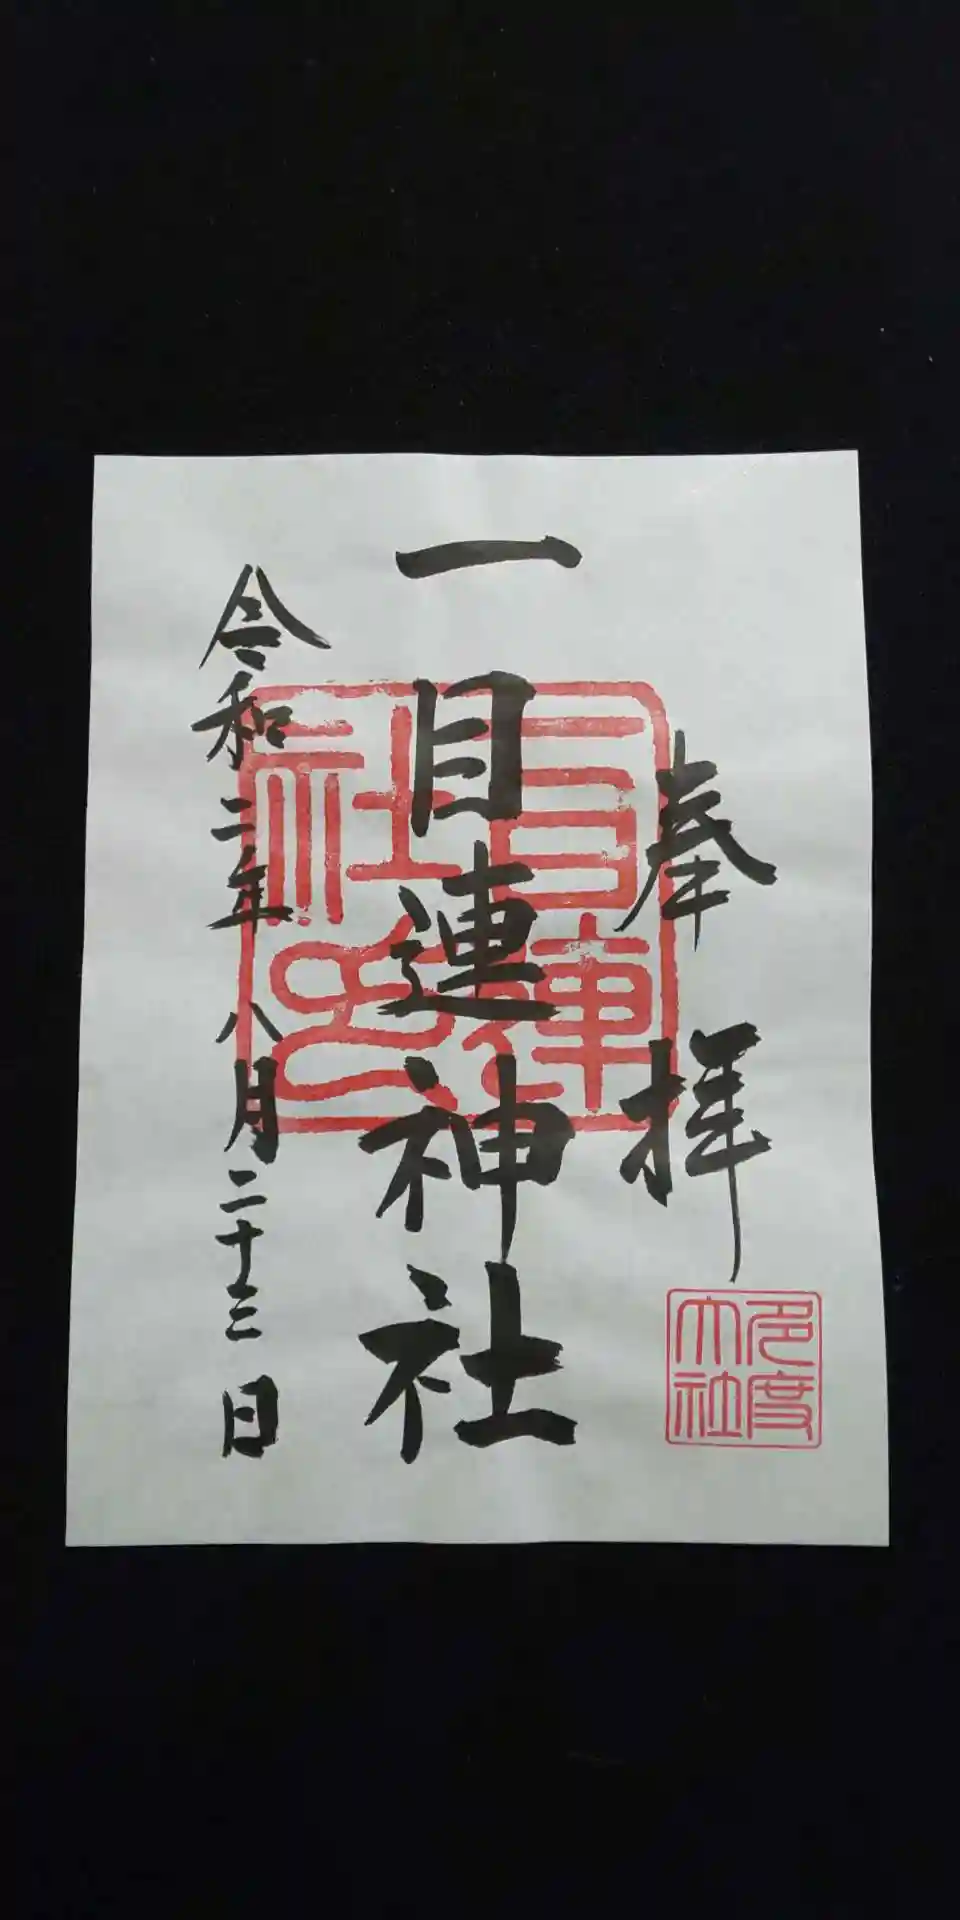 奉拝
多度
大社
一目連神社
令和二年八月二十三日